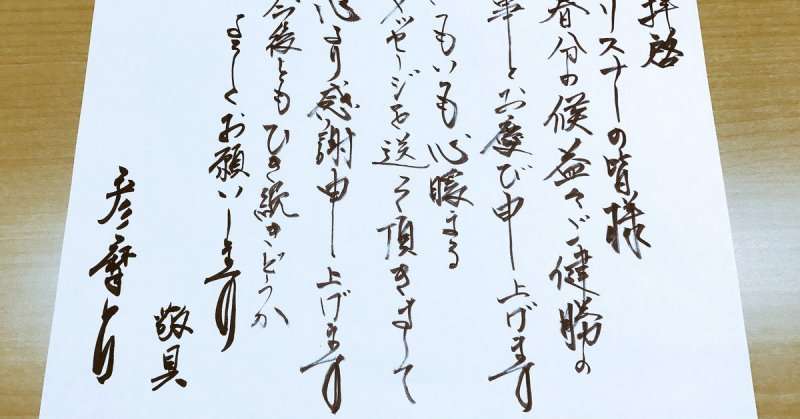 拝啓
リスナーの皆様
春分の候益々ご健勝の
事とお慶び申し上げます
もいつも心暖まる
メッセージを送って頂きまして
心より感謝申し上げます
今後ともひき続きどうか
よろしくお願いします
敬具
彦摩